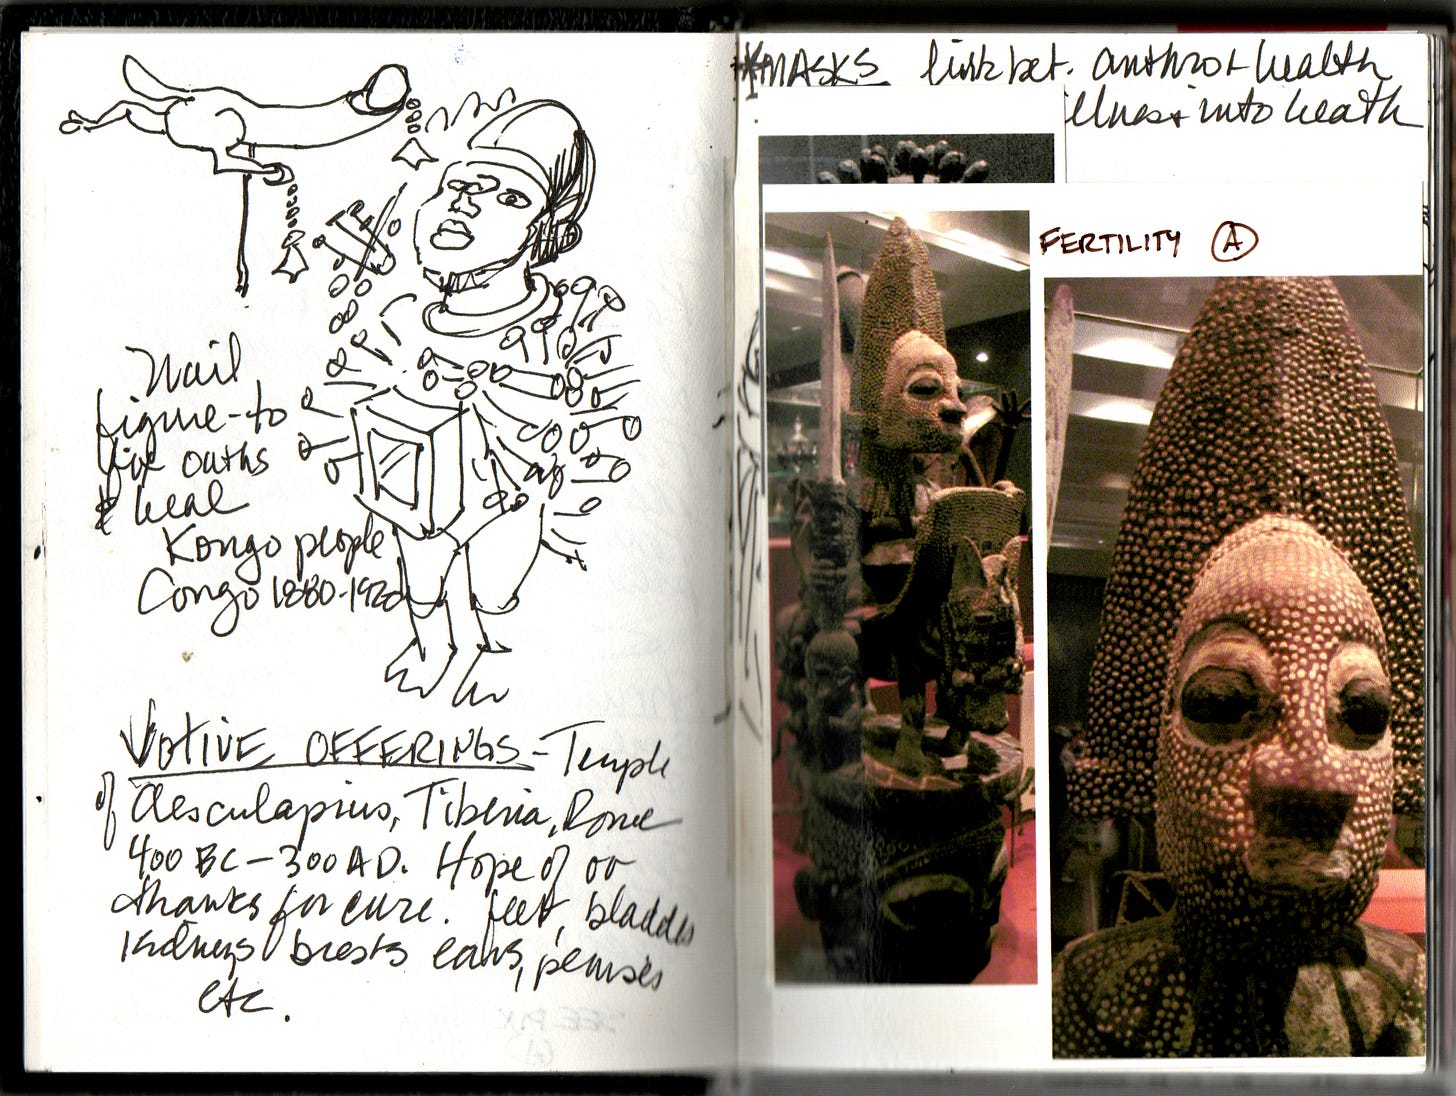 Nail
figure-to
fix oaths
& heal
Kongo people
Congo 1880-1920
VOTIVE OFFERINGS - Temple
of Aesculapius, Tiberia, Rome
400 BC - 300 AD. Hope of or
thanks for cure. feet, bladders
kidneys brests ears, penises
etc.
SEE PIX
*MASKS link bet. anthro & health
illness & into heath
FERTILITY A